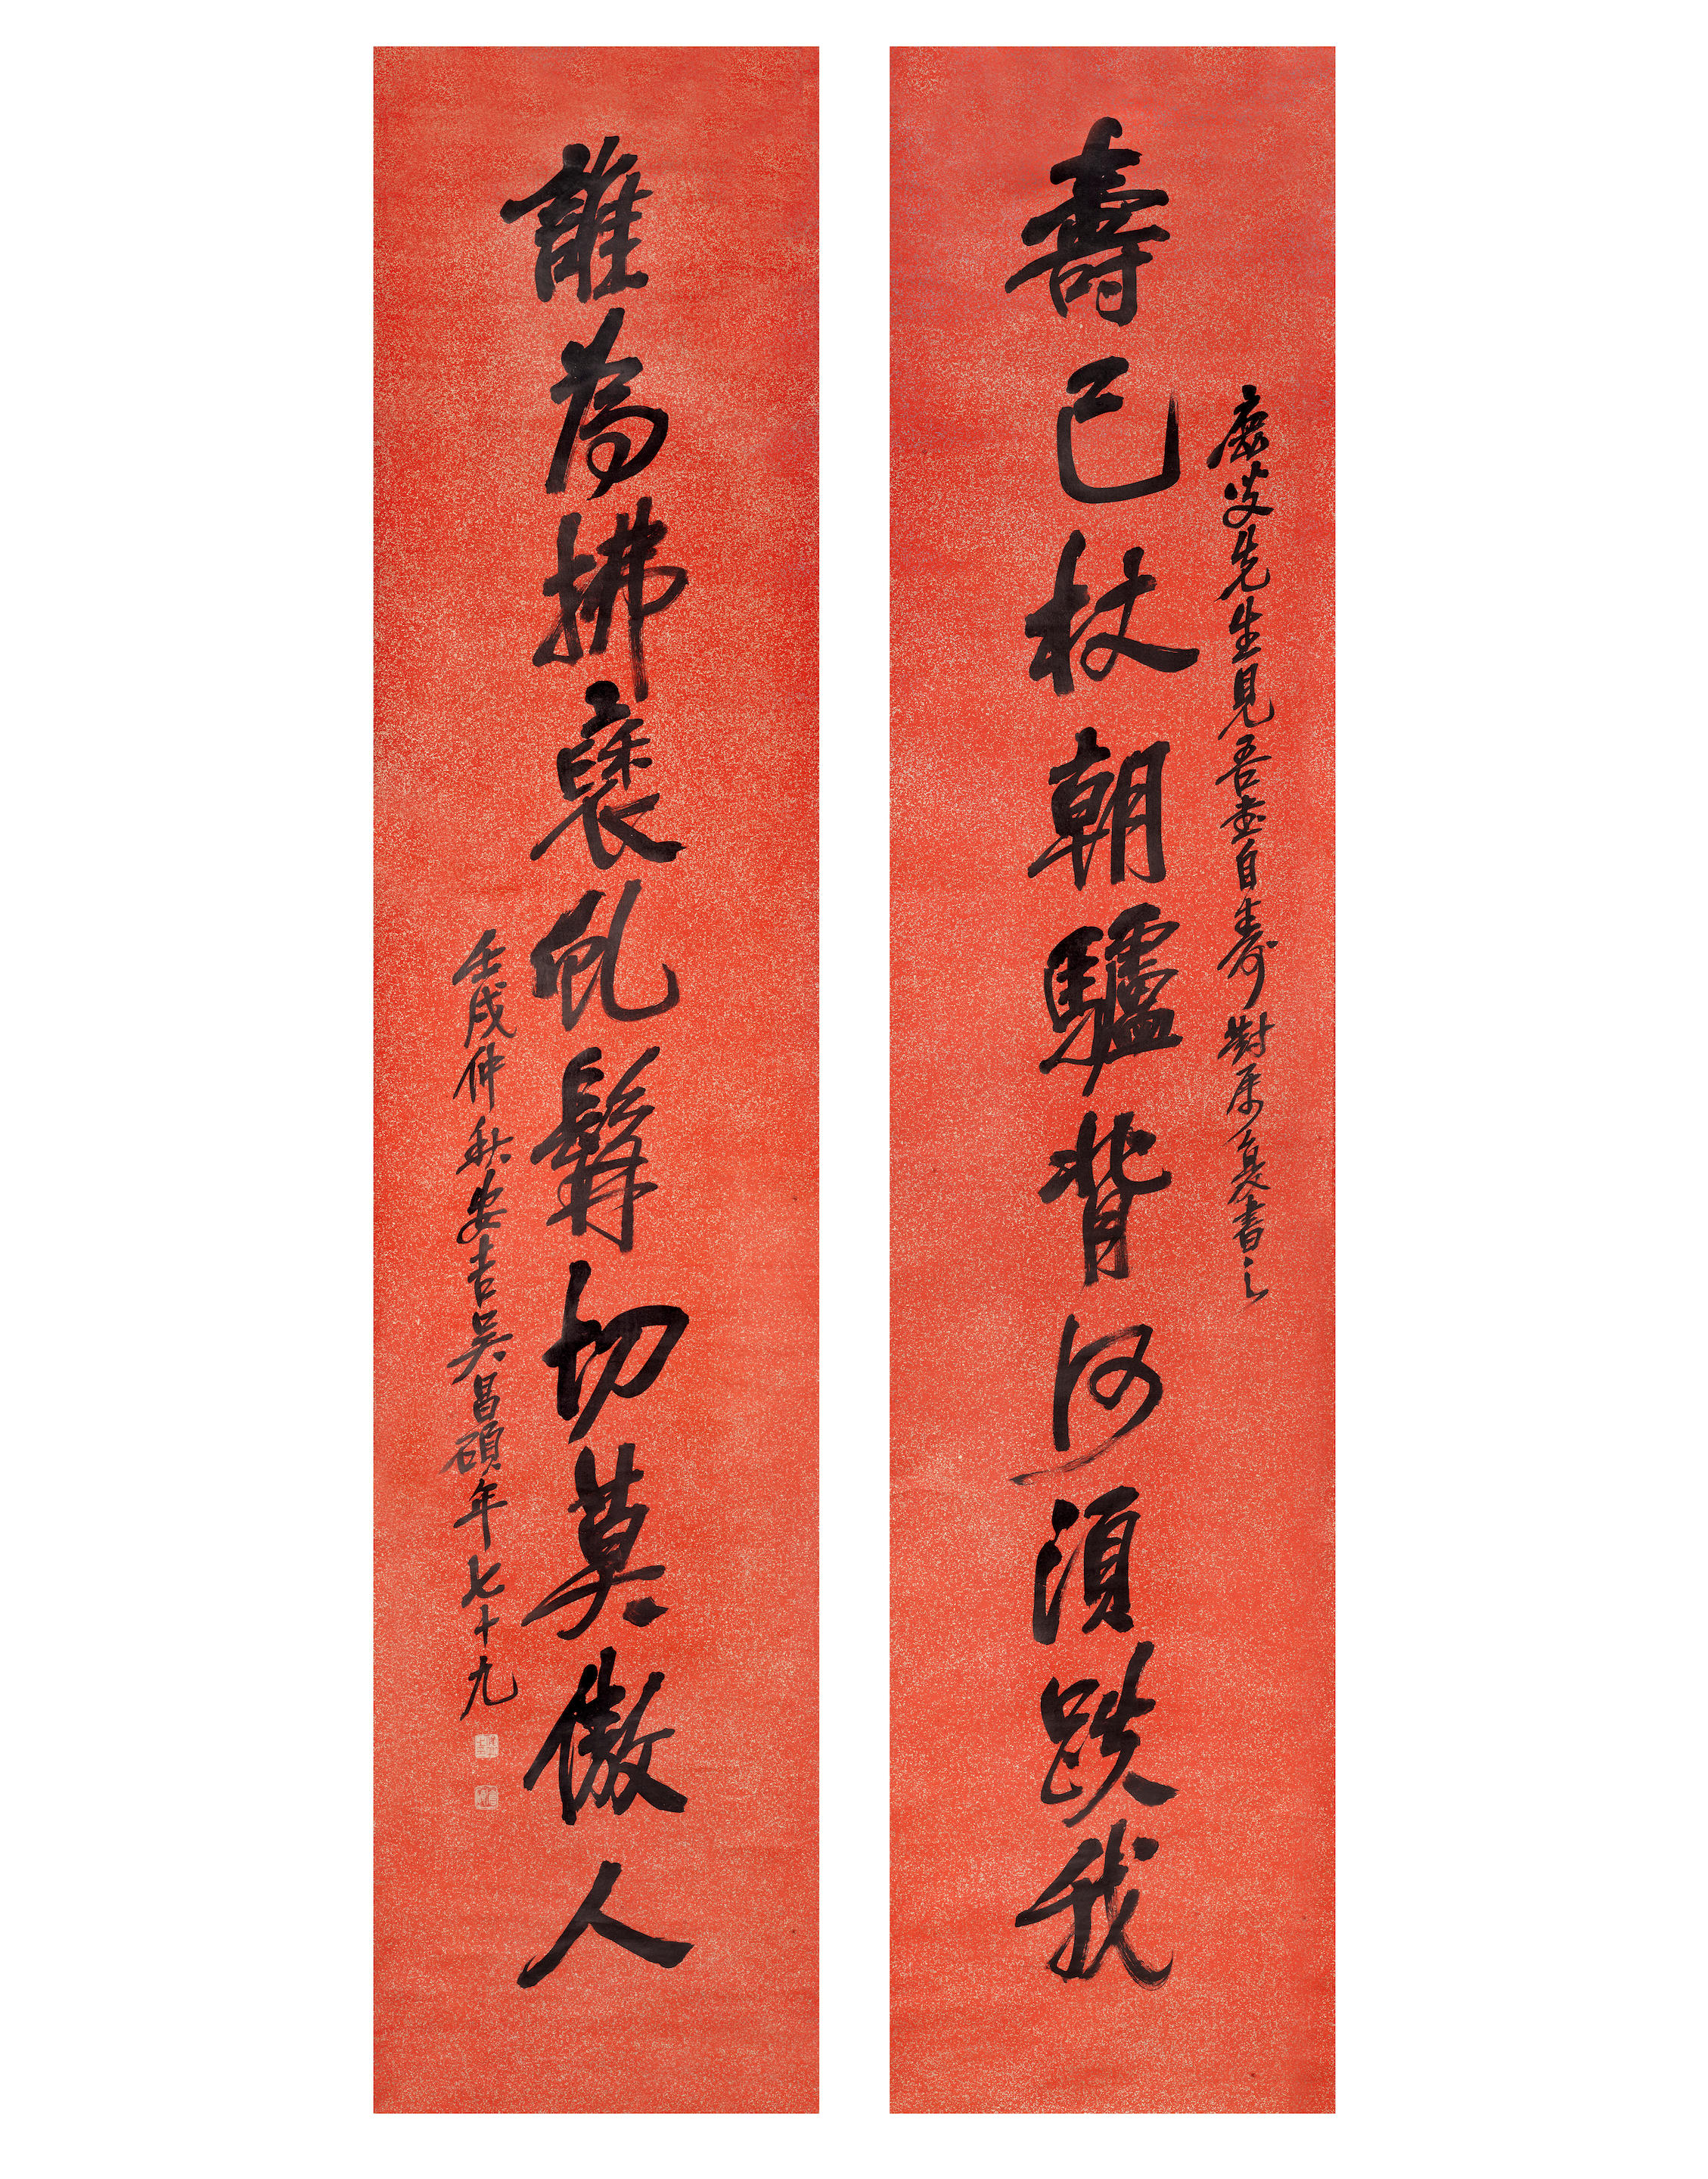 先生見吾自壽對屬書之
壽已杖朝驢背何須跌我
誰為拂虬髯切莫傲人
壬戌仲秋安吉吳昌碩年七十九